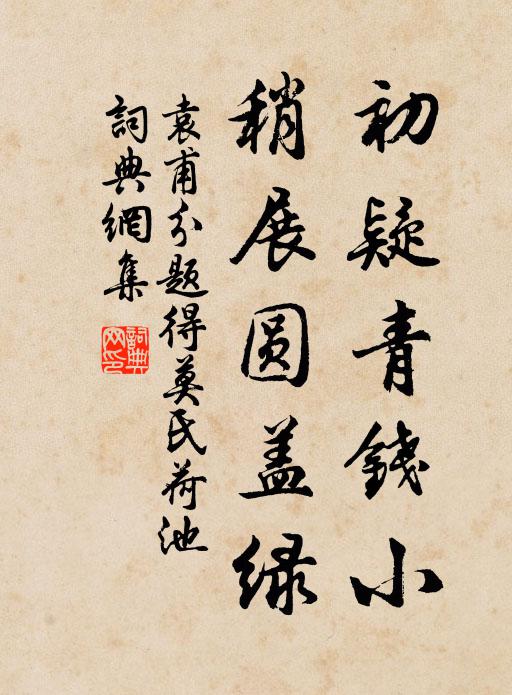 初疑青錢小
稍展圆盖緑
袁甫分题得莫氏荷池
詞典網集
詞典網印